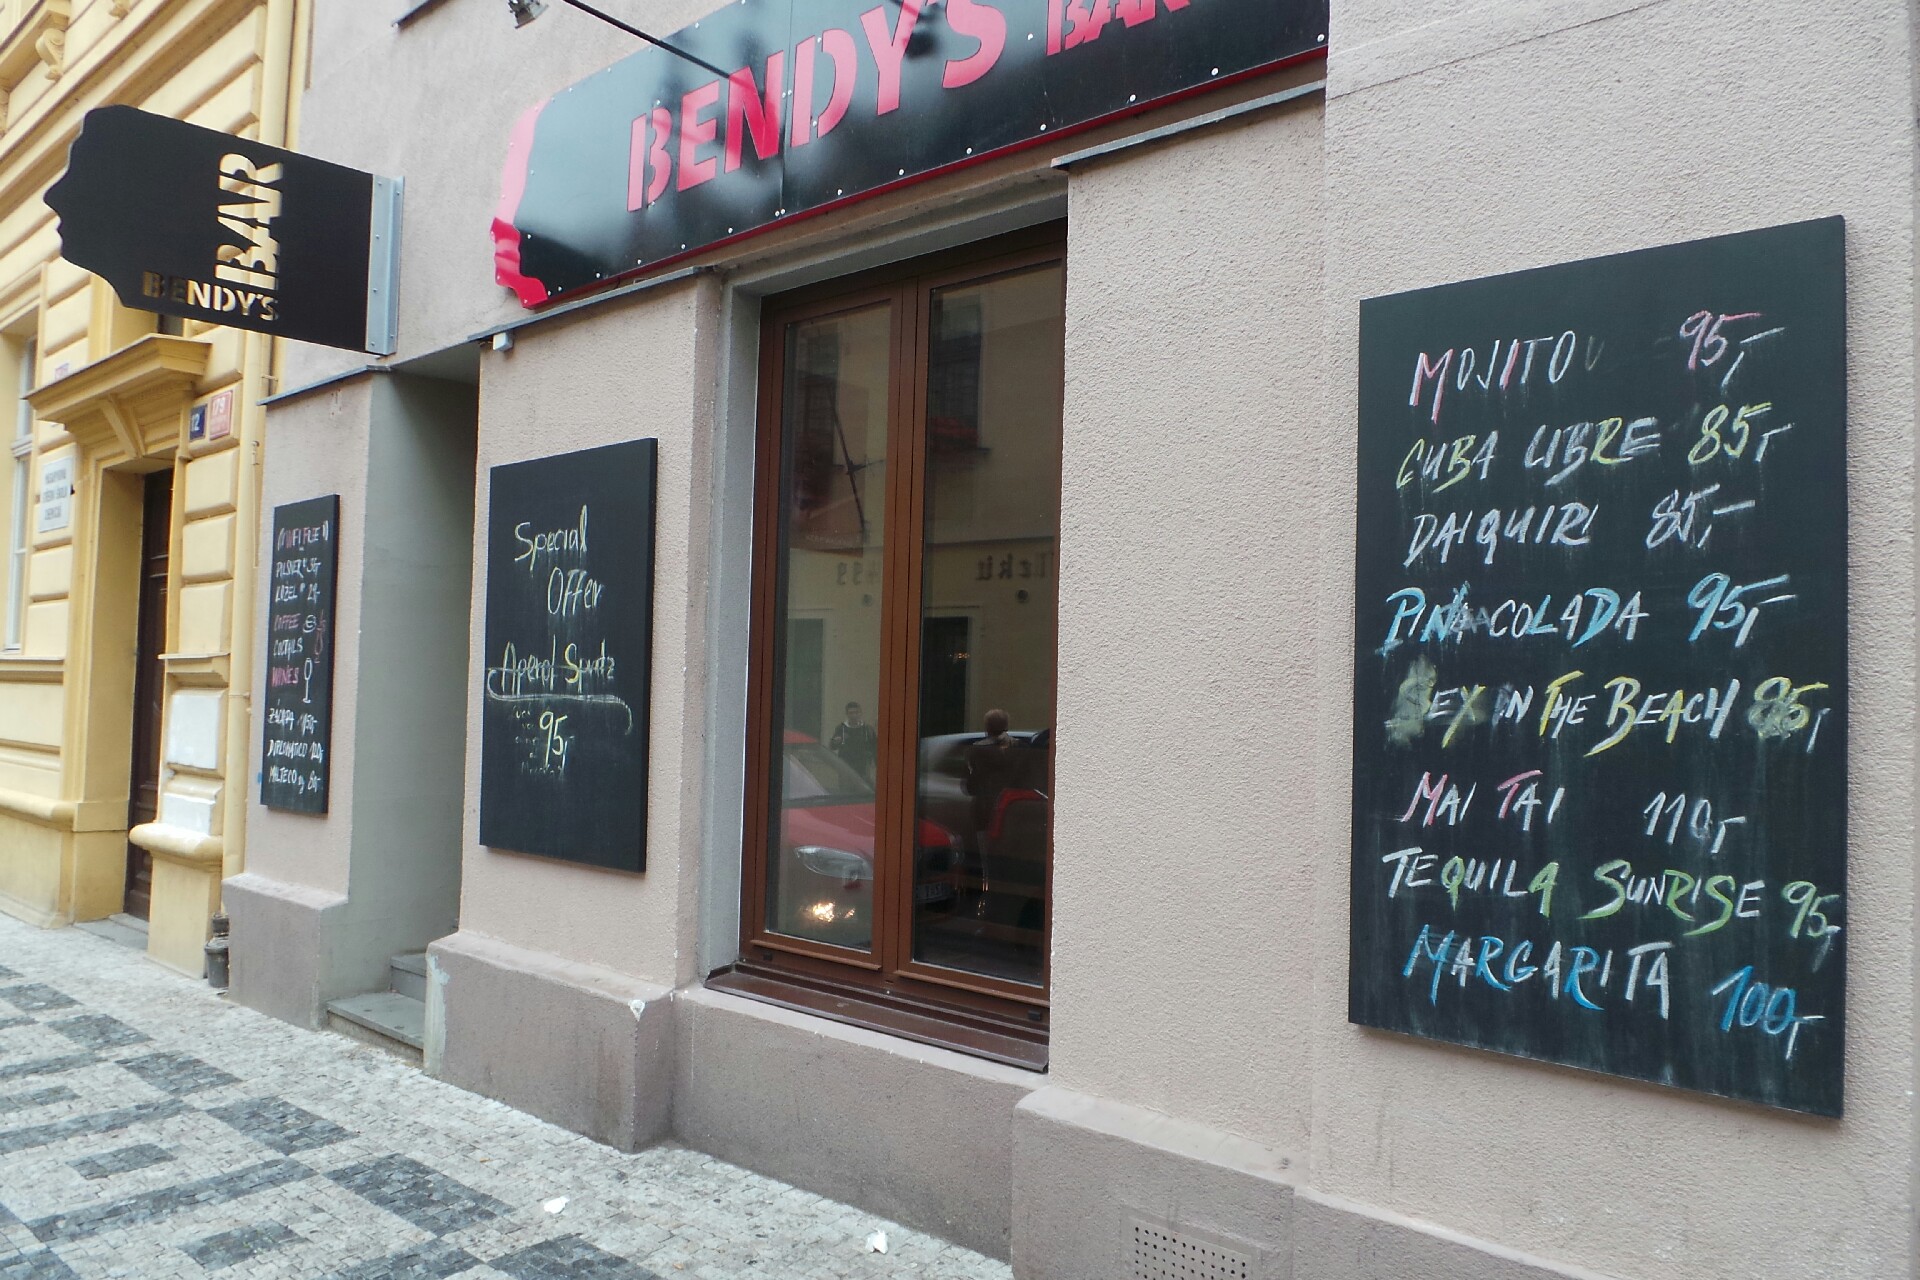 BENDY'S BAR
BAR
BENDY'S
179
12
PILSNER
KOZEL
COFFEE
COCTAILS
WINES
DIPLOMATICO
MALTECO
Special
Offer
Aperol Spritz
95,-
MOJITO 95,-
CUBA LIBRE 85,-
DAIQUIRI 85,-
PINACOLADA 95,-
SEX ON THE BEACH 85,-
MAI TAI 110,-
TEQUILA SUNRISE 95,-
MARGARITA 100,-